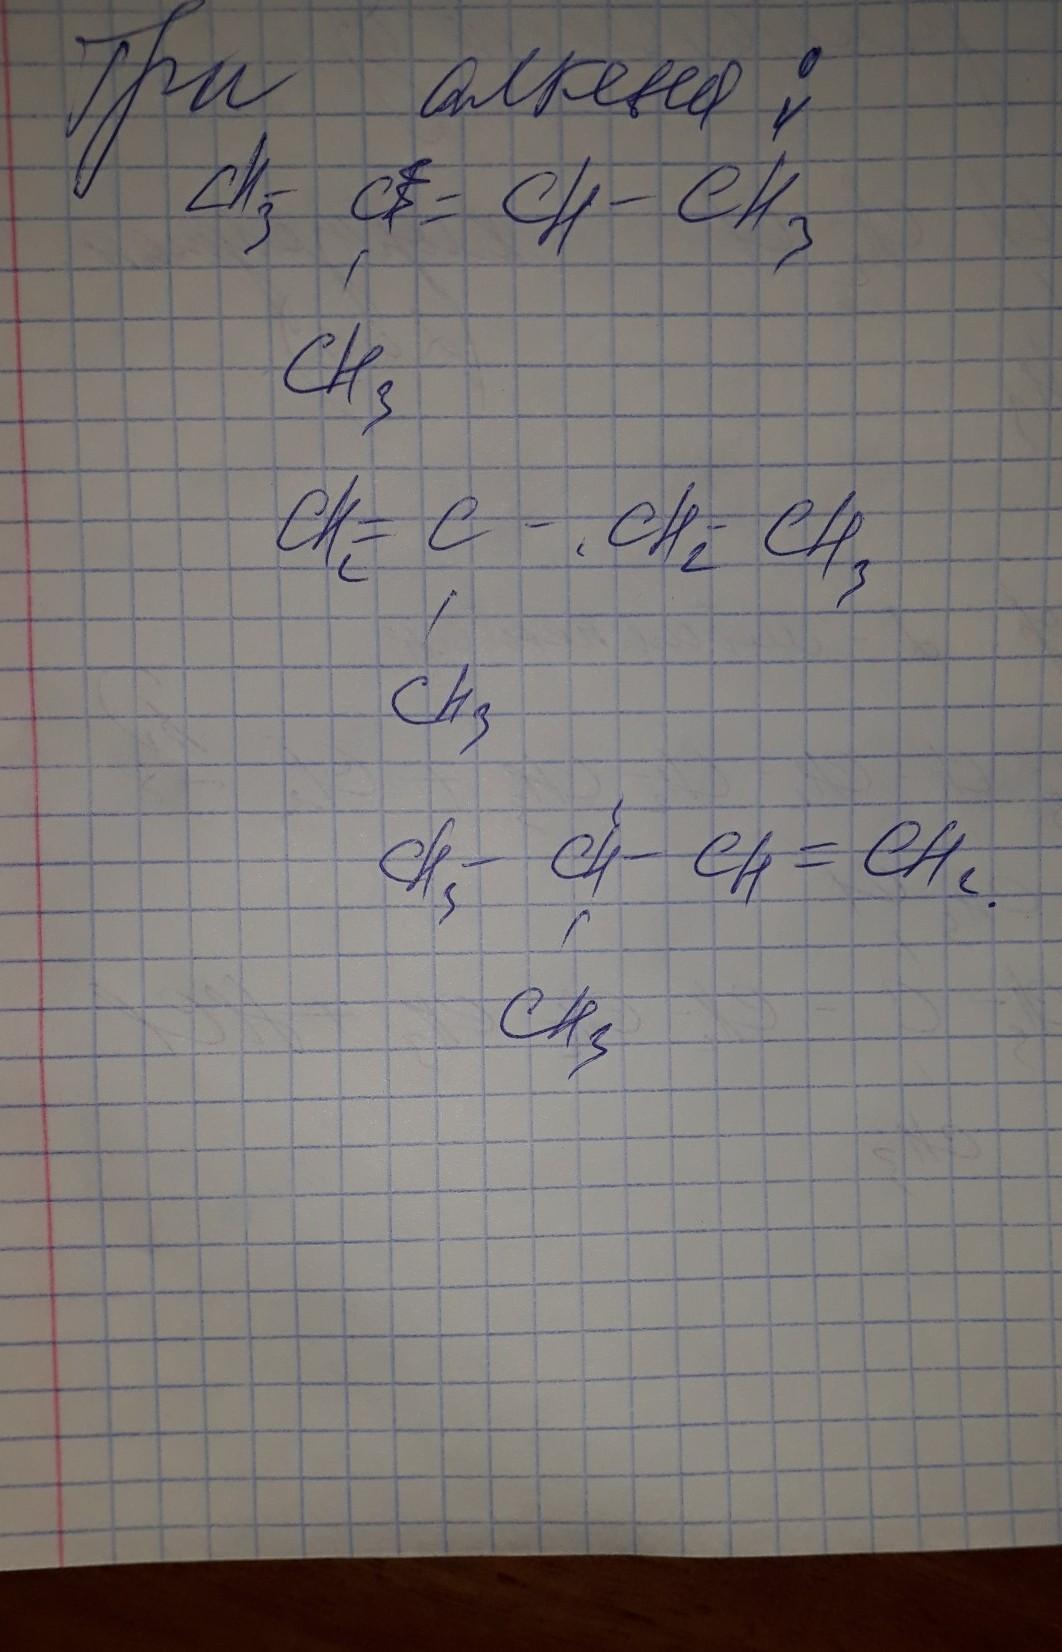 Три алкена:
CH3- C=CH-CH3
CH3
CH2=C-CH2-CH3
CH3
CH3-CH-CH=CH2.
CH3